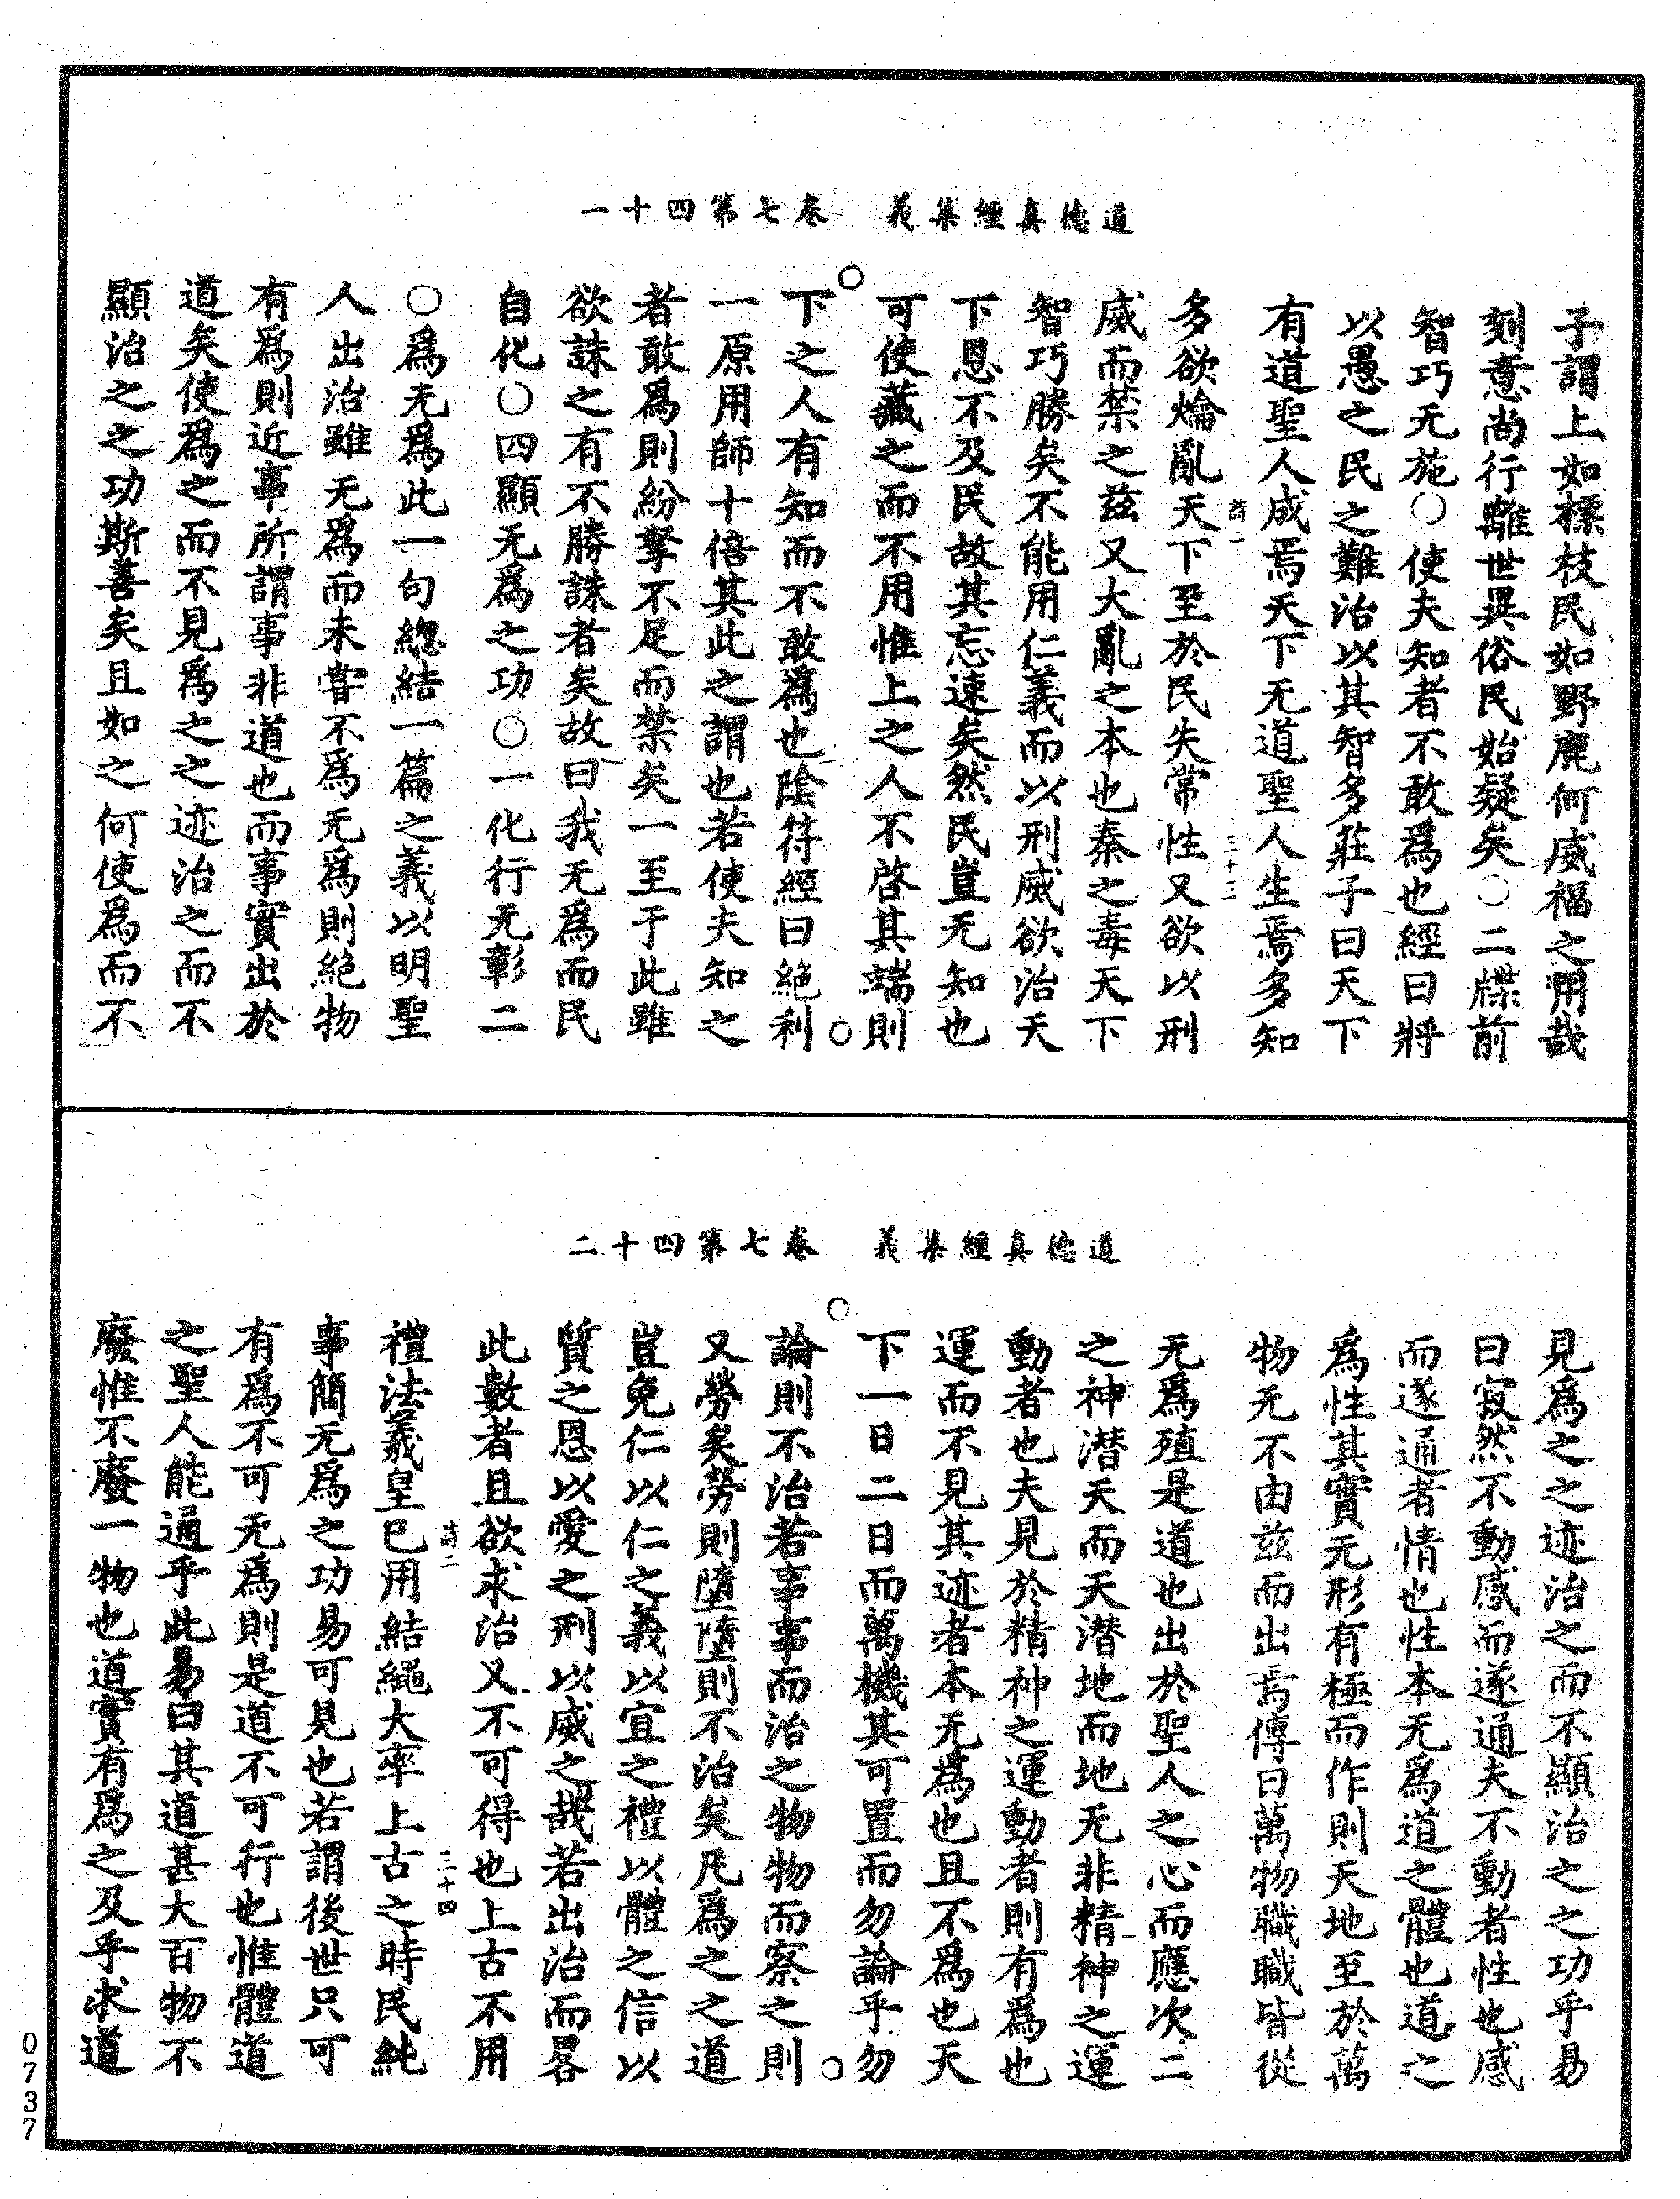 道德真經集義　卷七第四十一
子謂上如標枝民如野鹿何威福之用哉
刻意尚行離世異俗民始疑矣○二牒前
智巧无施○使夫知者不敢爲也經曰將
以愚之民之難治以其智多莊子曰天下
有道聖人成焉天下无道聖人生焉多知
三十三
多欲爚亂天下至於民失常性又欲以刑
威而禁之茲又大亂之本也秦之毒天下
智巧勝矣不能用仁義而以刑威欲治天
下恩不及民故其忘速矣然民豈无知也
可使藏之而不用惟上之人不啓其端則
下之人有知而不敢爲也陰符經曰絕利
一原用師十倍其此之謂也若使夫知之
者敢爲則紛拏不足而禁矣一至于此雖
欲誅之有不勝誅者矣故曰我无爲而民
自化○四顯无爲之功○一化行无彰二
○爲无爲此一句緫結一篇之義以明聖
人出治雖无爲而未甞不爲无爲則絕物
有爲則近事所謂事非道也而事實出於
道矣使爲之而不見爲之之迹治之而不
顯治之之功斯善矣且如之何使爲而不
道德真經集義　卷七第四十二
見爲之之迹治之而不顯治之之功乎易
曰寂然不動感而遂通夫不動者性也感
而遂通者情也性本无爲道之體也道之
爲性其實无形有極而作則天地至於萬
物无不由茲而出焉傳曰萬物職職皆從
无爲殖是道也出於聖人之心而應次二
之神潜天而天潜地而地无非精神之運
動者也夫見於精神之運動者則有爲也
運而不見其迹者本无爲也且不爲也天
下一日二日而萬機其可置而勿論乎勿
論則不治若事事而治之物物而察之則
又勞矣勞則墮墮則不治矣凡爲之之道
豈免仁以仁之義以宜之禮以體之信以
質之恩以愛之刑以威之哉若出治而畧
此數者且欲求治又不可得也上古不用
三十四
禮法羲皇已用結繩大率上古之時民純
事簡无爲之功易可見也若謂後世只可
有爲不可无爲則是道不可行也惟體道
之聖人能通乎此易曰其道甚大百物不
廢惟不廢一物也道實有爲之及乎求道
0737